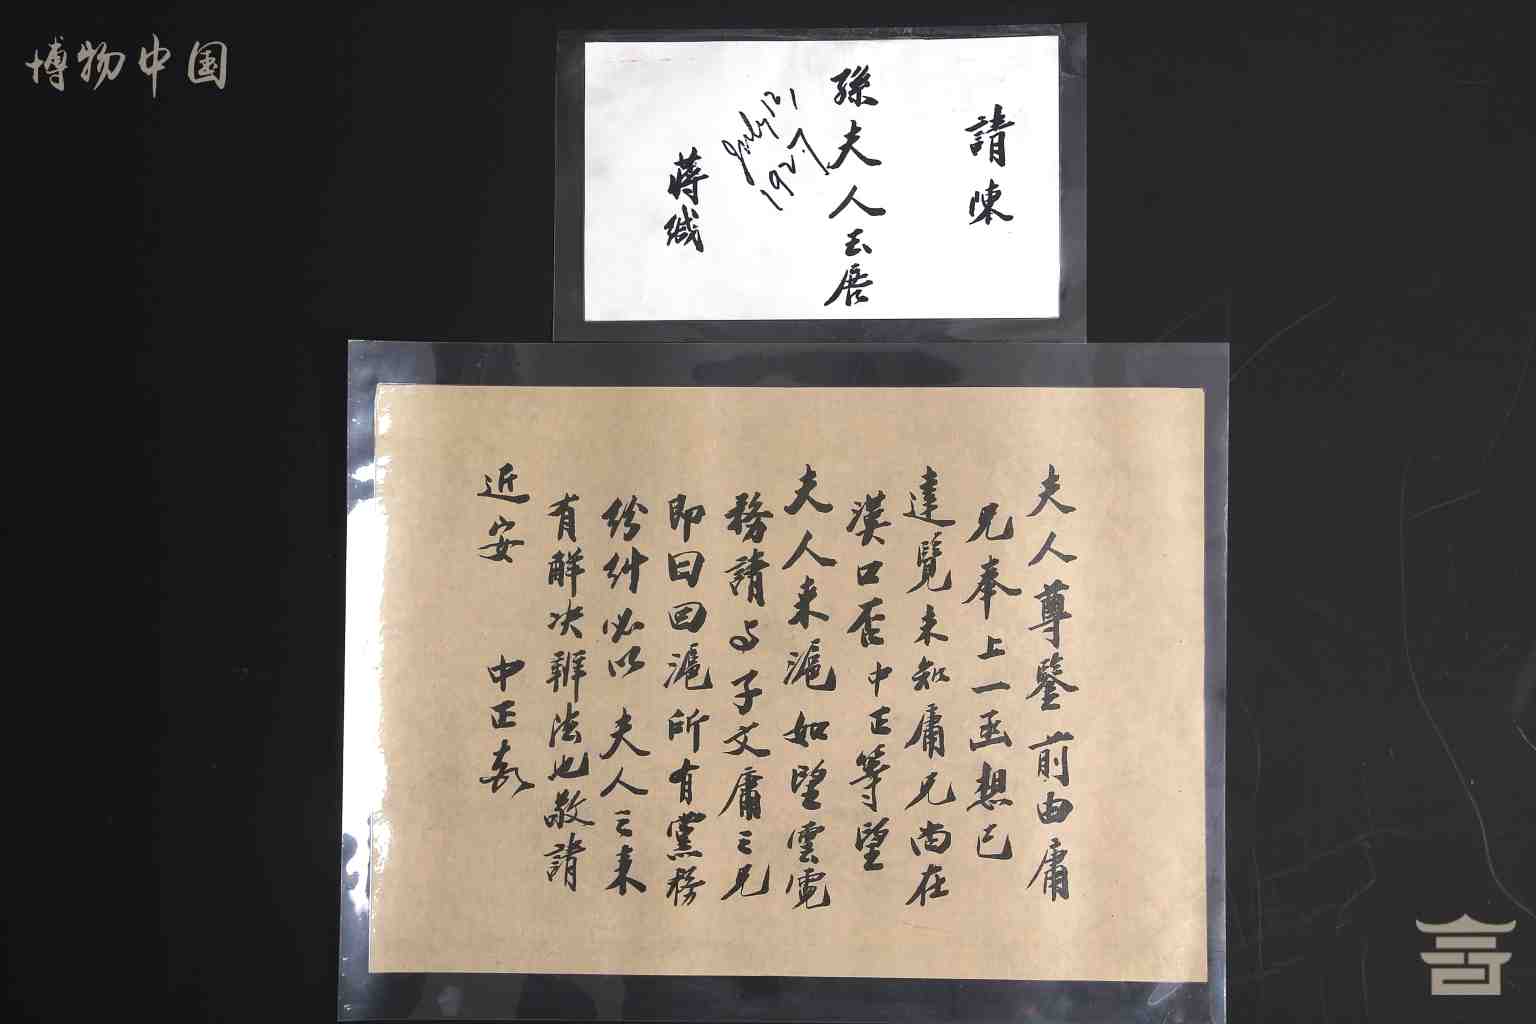 博物中国
請陳
孫夫人玉啓
July 12,
1927.
蔣緘
夫人尊鑒前由庸
兄奉上一函想已
達覽未知庸兄尚在
漢口否中正等望
夫人來滬如望雲霓
務請與子文庸之兄
即日回滬所有黨務
紛糾必以夫人之來
有解決辦法也敬請
近安 中正